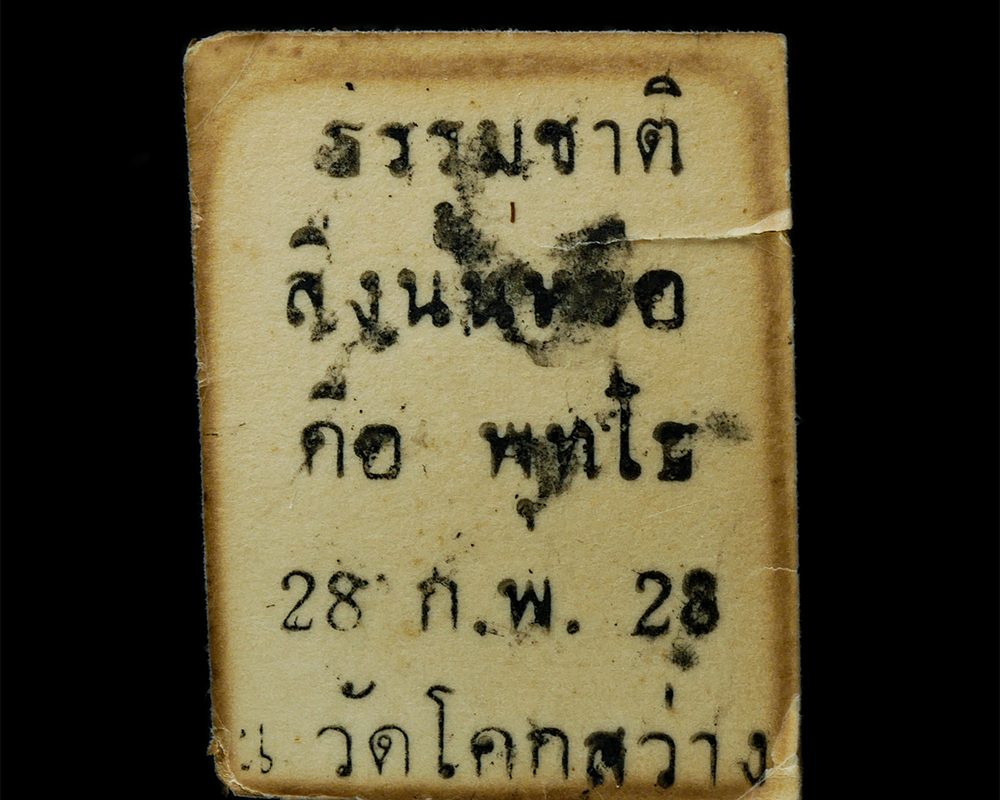 ธรรมชาติ
สิ่งนั้นหรือ
คือ พุทโธ
28 ก.พ. 28
วัดโคกสว่าง